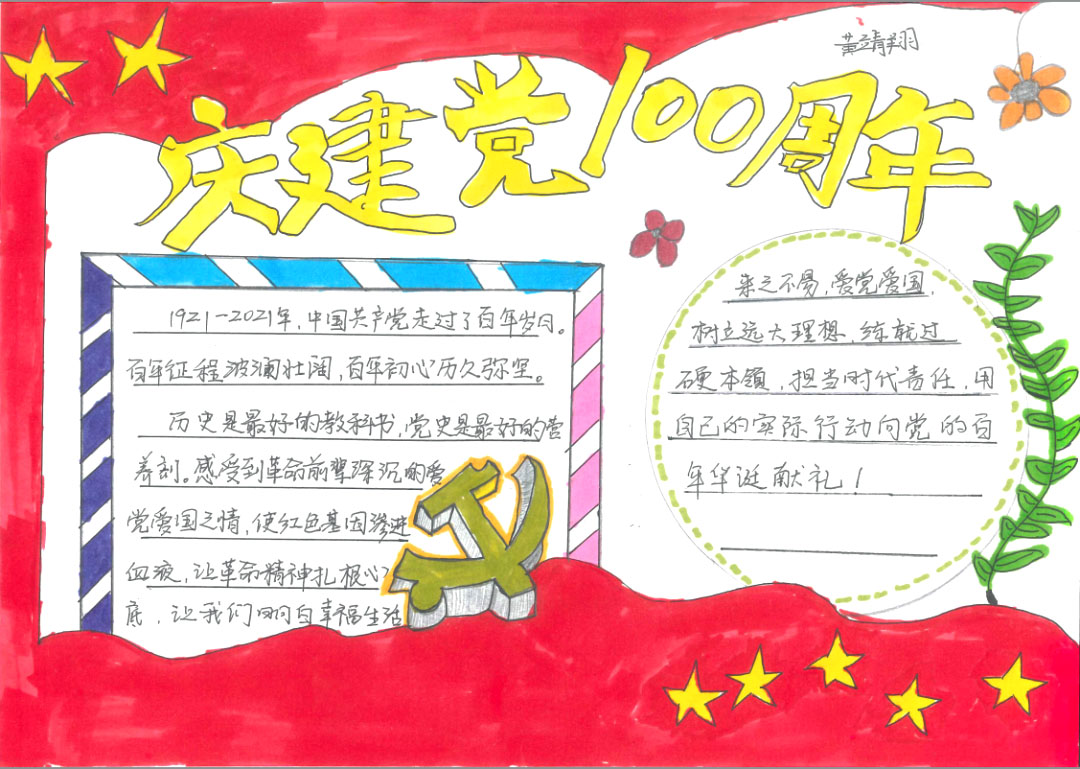 董靖翔
庆建党100周年
1921-2021年,中国共产党走过了百年岁日。
百年征程波澜壮阔,百年初心历久弥坚。
历史是最好的教科书,党史是最好的营
养剂。感受到革命前辈深沉的爱
党爱国之情,使红色基因渗进
血液,让革命精神扎根心
底,让我们明白幸福生活
来之不易,爱党爱国,
树立远大理想,练就过
硬本领,担当时代责任,用
自己的实际行动向党的百
年华诞献礼!